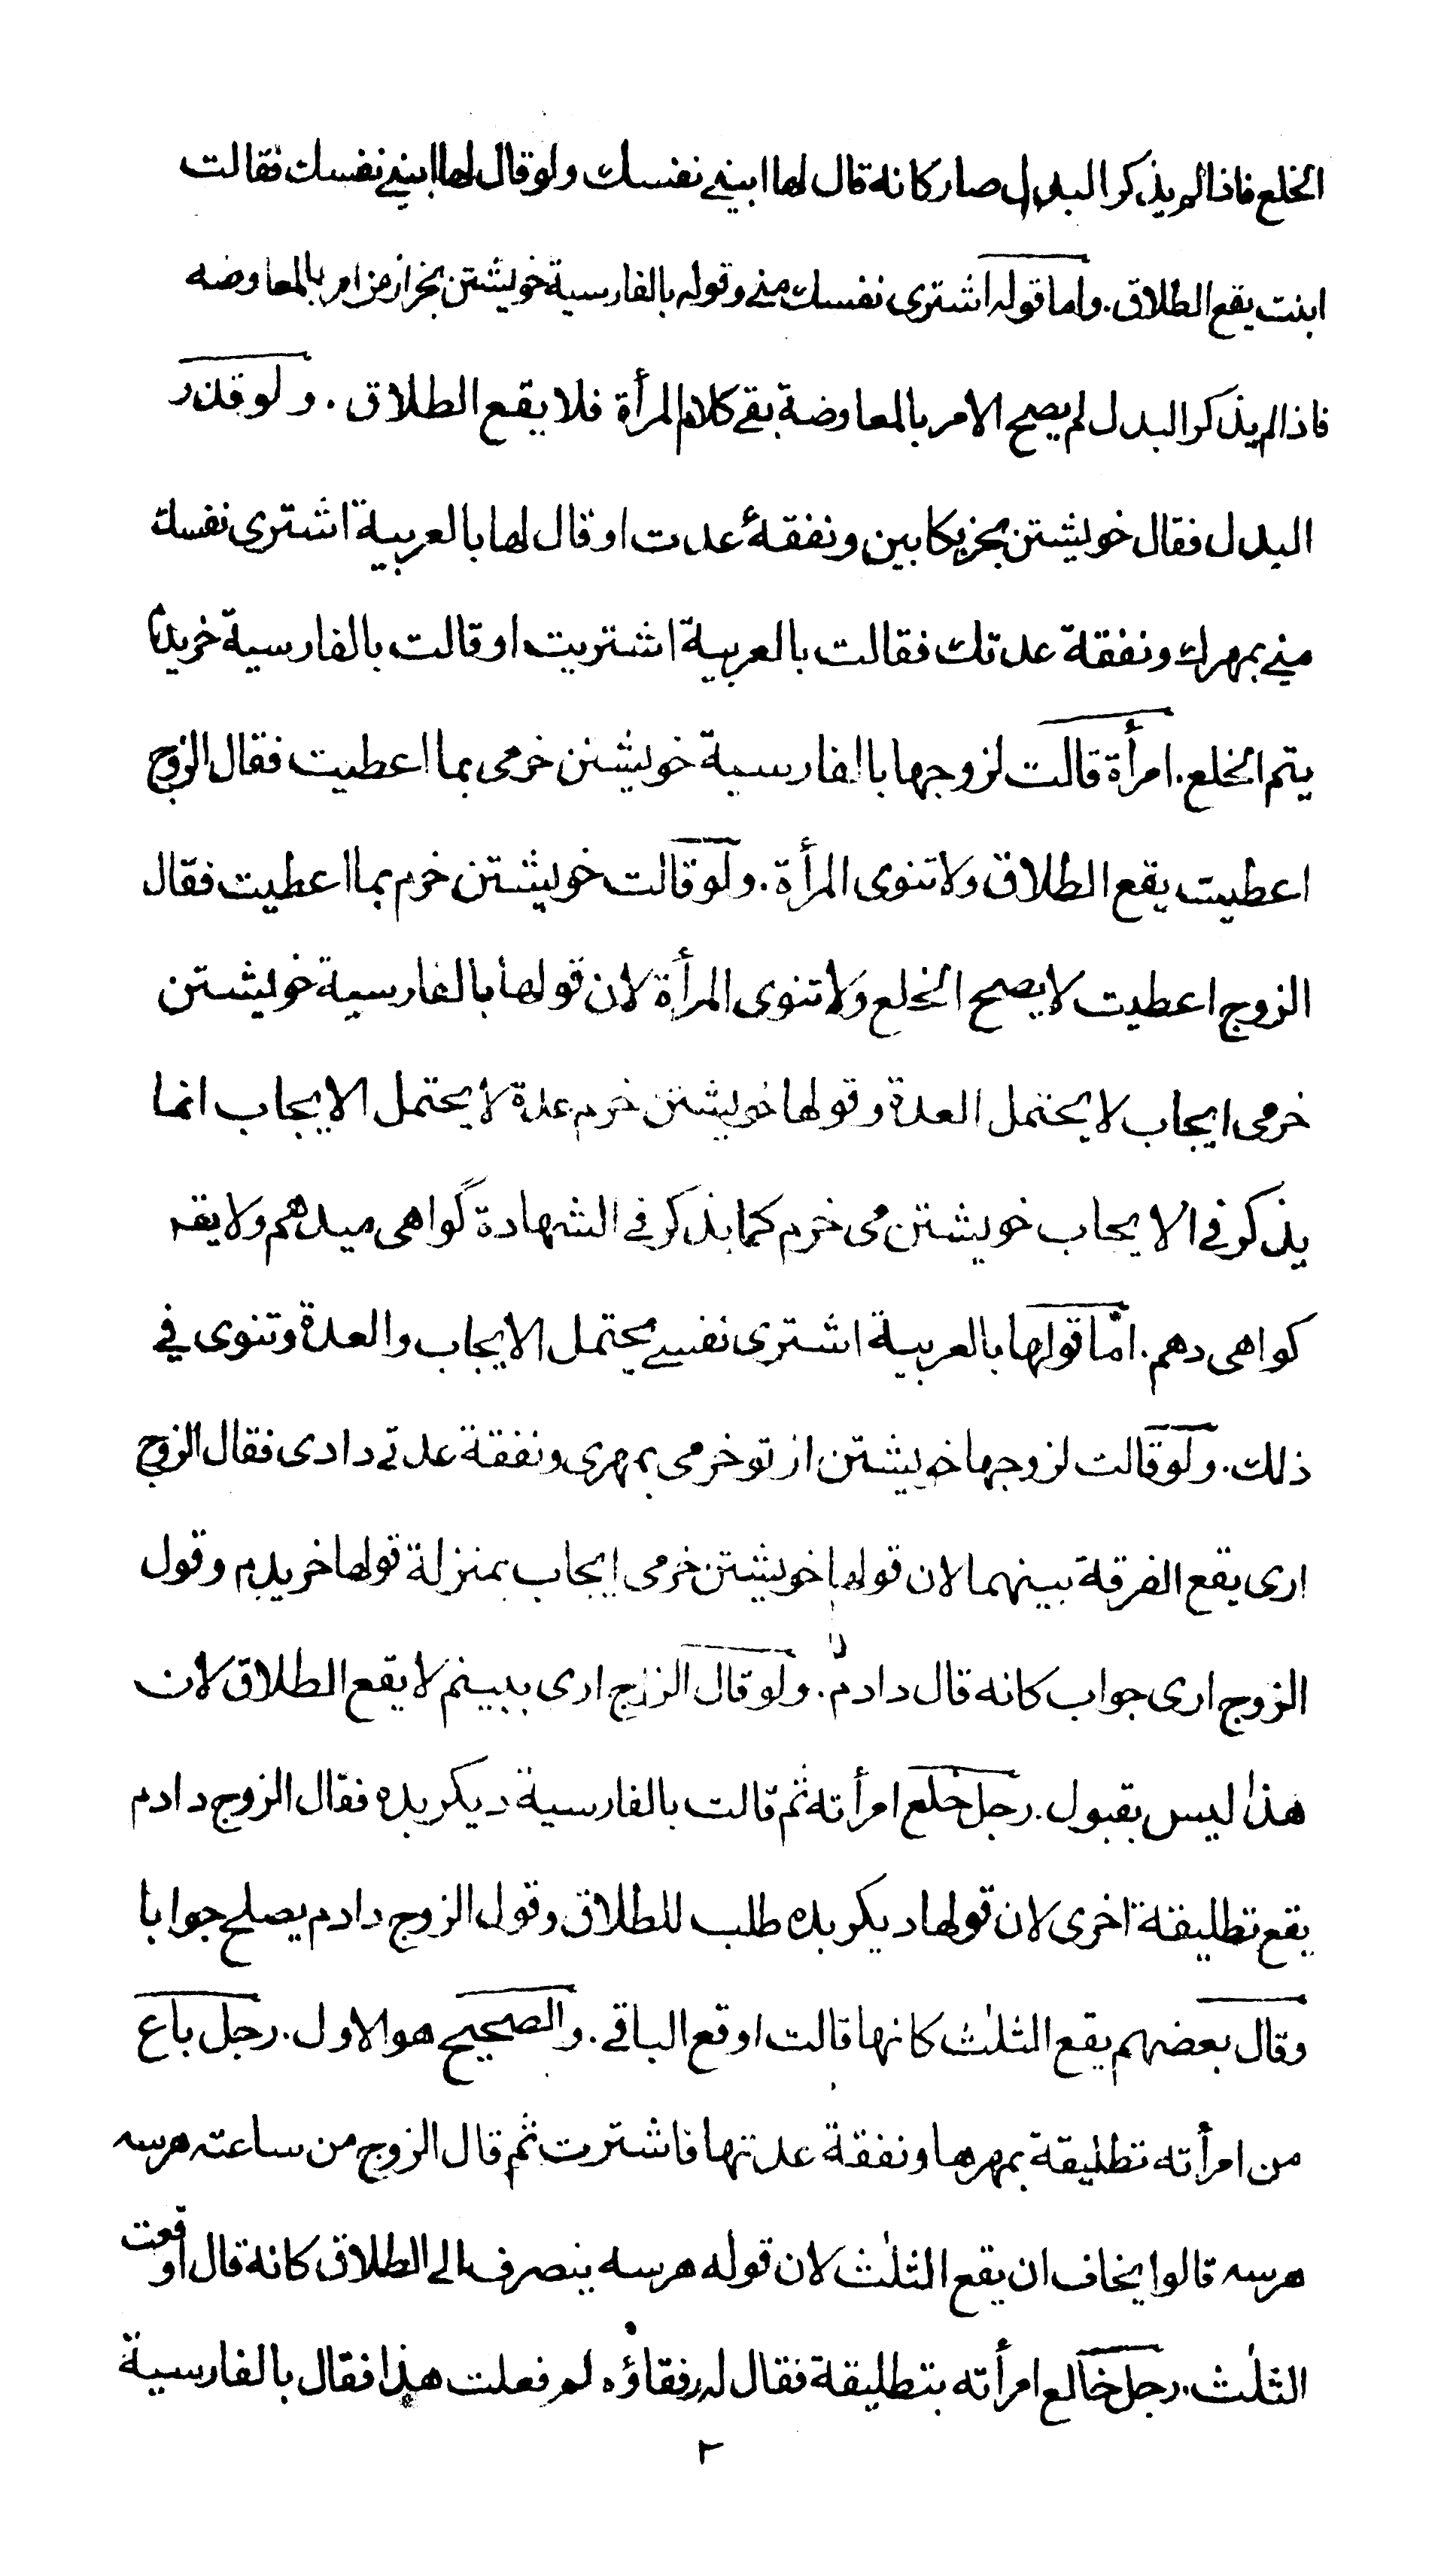 الخلع فاذا لم يذكر البدل صار كانه قال لها ابيني نفسك ولو قال لها ابيني نفسك فقالت
ابنت يقع الطلاق. واما قوله اشترى نفسك مني وقوله بالفارسية خويشتن بخر از من امر بالمعاوضه
فاذا لم يذكر البدل لم يصح الامر بالمعاوضة بقي كلام المرأة فلا يقع الطلاق. ولو قدر
البدل فقال خويشتن بخر بكابين ونفقهٔ عدت او قال لها بالعربية اشترى نفسك
مني بمهرك ونفقة عدتك فقالت بالعربية اشتريت او قالت بالفارسية خريدم
يتم الخلع. امرأة قالت لزوجها بالفارسية خويشتن خرمى بما اعطيت فقال الزوج
اعطيت يقع الطلاق ولا تنوى المرأة. ولو قالت خويشتن خرم بما اعطيت فقال
الزوج اعطيت لا يصح الخلع ولا تنوى المرأة لان قولها بالفارسية خويشتن
خرمى ايجاب لا يحتمل العدة وقولها خويشتن خرم عدة لا يحتمل الايجاب انما
يذكر في الايجاب خويشتن مى خرم كما يذكر في الشهادة گواهى ميدهم ولا يقه
كواهى دهم. امّا قولها بالعربية اشترى نفسي يحتمل الايجاب والعدة وتنوى في
ذلك. ولو قالت لزوجها خويشتن از تو خرمى بمهرى ونفقة عدتي دادى فقال الزوج
ارى يقع الفرقة بينهما لان قولها خويشتن خرمى ايجاب بمنزلة قولها خريدم وقول
الزوج ارى جواب كانه قال دادم. ولو قال الزوج ارى ببينم لا يقع الطلاق لان
هذا ليس بقبول. رجل خلع امرأته ثم قالت بالفارسية ديكر بده فقال الزوج دادم
يقع تطليقة اخرى لان قولها ديكر بده طلب للطلاق وقول الزوج دادم يصلح جوابا
وقال بعضهم يقع الثلث كانها قالت اوقع الباقي. والصحيح هو الاول. رجل باع
من امرأته تطليقة بمهرها ونفقة عدتها فاشترت ثم قال الزوج من ساعته هرسه
هرسه قالوا يخاف ان يقع الثلث لان قوله هرسه ينصرف الى الطلاق كانه قال اوقعت
الثلث. رجل خالع امرأته بتطليقة فقال له رفقاؤه لم فعلت هذا فقال بالفارسية
٢